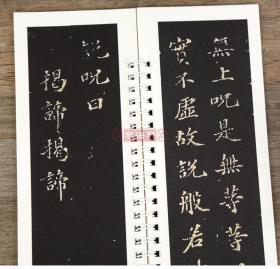 無上呪是無等等
實不虛故說般若
說呪曰
揭諦揭諦